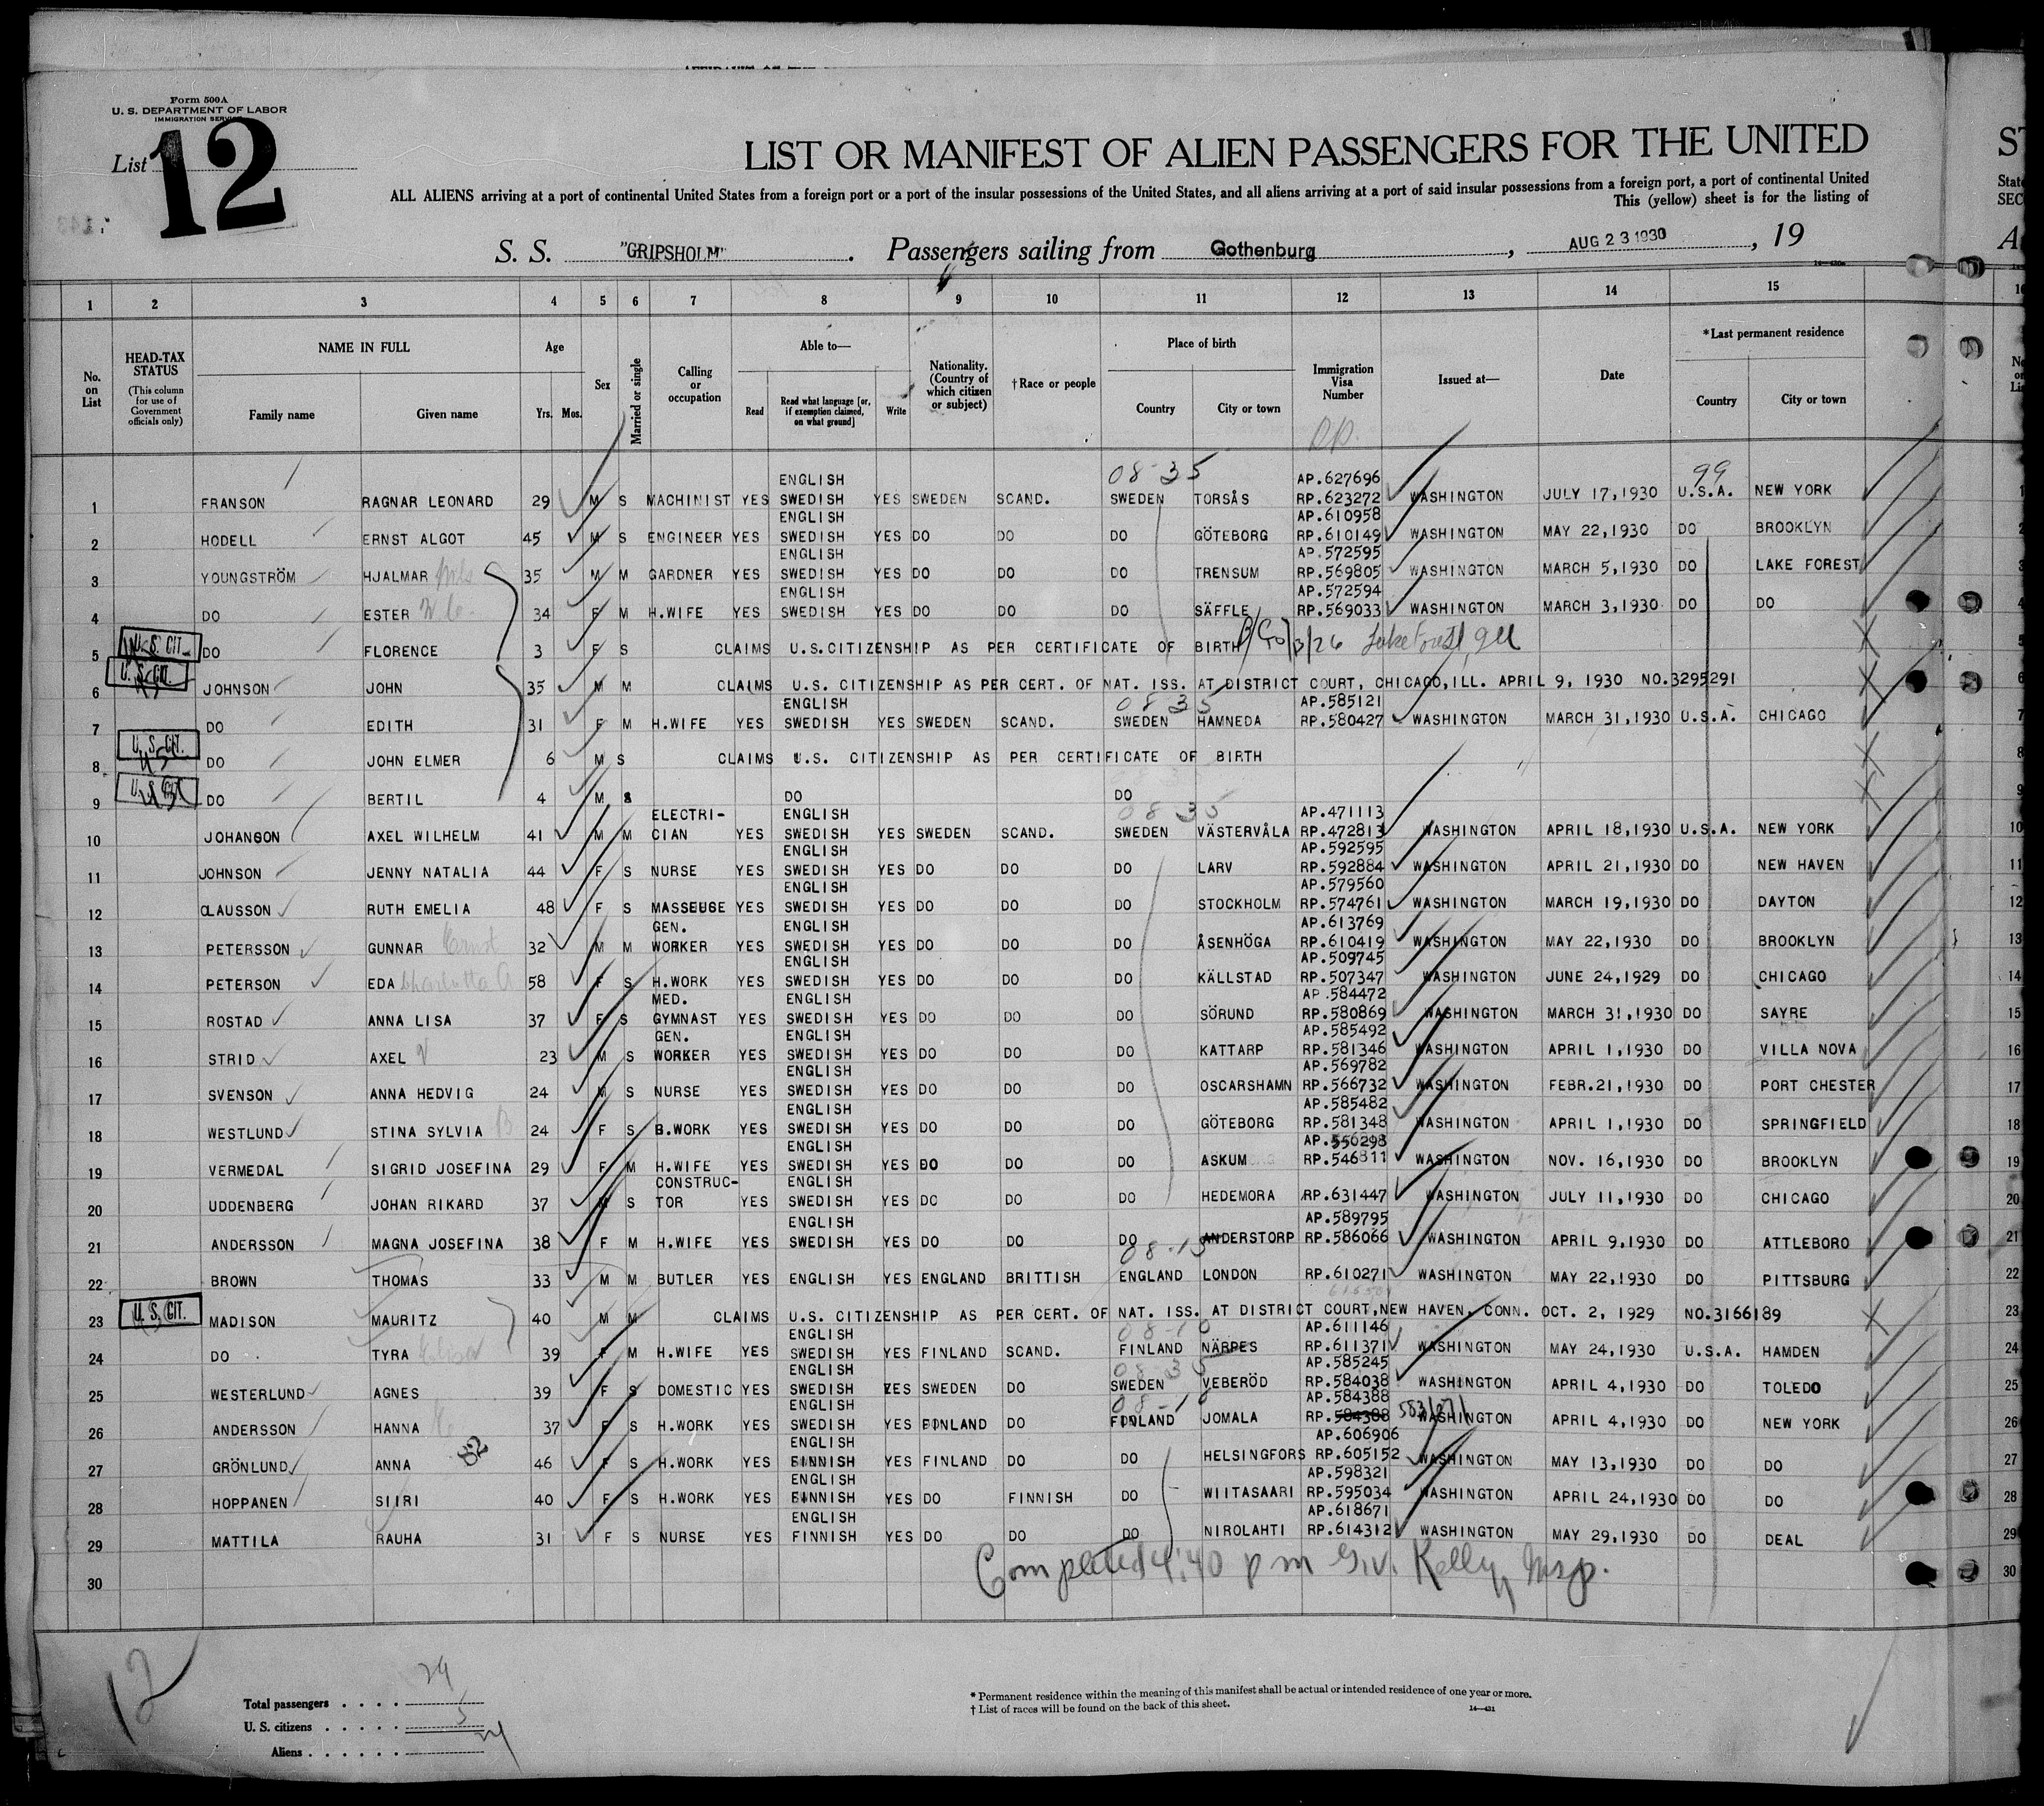 Form 500A
U. S. DEPARTMENT OF LABOR
IMMIGRATION SERVICE
List 12
LIST OR MANIFEST OF ALIEN PASSENGERS FOR THE UNITED
ALL ALIENS arriving at a port of continental United States from a foreign port or a port of the insular possessions of the United States, and all aliens arriving at a port of said insular possessions from a foreign port, a port of continental United
This (yellow) sheet is for the listing of
S. S. "GRIPSHOLM". Passengers sailing from Gothenburg, AUG 23 1930, 19
1 2 3 4 5 6 7 8 9 10 11 12 13 14 15
No. on List
HEAD-TAX STATUS (This column for use of Government officials only)
NAME IN FULL Family name Given name
Age Yrs. Mos.
Sex
Married or single
Calling or occupation
Able to— Read Read what language [or, if exemption claimed, on what ground] Write
Nationality. (Country of which citizen or subject)
†Race or people
Place of birth Country City or town
Immigration Visa Number
Issued at—
Date
*Last permanent residence Country City or town
08-35 99
ENGLISH AP.627696
1 FRANSON RAGNAR LEONARD 29 M S MACHINIST YES SWEDISH YES SWEDEN SCAND. SWEDEN TORSÅS RP.623272 WASHINGTON JULY 17,1930 U.S.A. NEW YORK 1
ENGLISH AP.610958
2 HODELL ERNST ALGOT 45 M S ENGINEER YES SWEDISH YES DO DO DO GÖTEBORG RP.610149 WASHINGTON MAY 22,1930 DO BROOKLYN 2
ENGLISH AP.572595
3 YOUNGSTRÖM HJALMAR 35 M M GARDNER YES SWEDISH YES DO DO DO TRENSUM RP.569805 WASHINGTON MARCH 5,1930 DO LAKE FOREST 3
ENGLISH AP.572594
4 DO ESTER 34 F M H.WIFE YES SWEDISH YES DO DO DO SÄFFLE RP.569033 WASHINGTON MARCH 3,1930 DO DO 4
5 U.S. CIT. DO FLORENCE 3 F S CLAIMS U.S.CITIZENSHIP AS PER CERTIFICATE OF BIRTH Lake Forest, Ill 5
6 U.S. CIT. JOHNSON JOHN 35 M M CLAIMS U.S. CITIZENSHIP AS PER CERT. OF NAT. ISS. AT DISTRICT COURT, CHICAGO,ILL. APRIL 9, 1930 NO.3295291 6
ENGLISH 08 35 AP.585121
7 DO EDITH 31 F M H.WIFE YES SWEDISH YES SWEDEN SCAND. SWEDEN HAMNEDA RP.580427 WASHINGTON MARCH 31,1930 U.S.A. CHICAGO 7
8 U.S. CIT. DO JOHN ELMER 6 M S CLAIMS U.S. CITIZENSHIP AS PER CERTIFICATE OF BIRTH 8
9 U.S. CIT. DO BERTIL 4 M S DO DO 9
ELECTRI- ENGLISH 08 35 AP.471113
10 JOHANSON AXEL WILHELM 41 M M CIAN YES SWEDISH YES SWEDEN SCAND. SWEDEN VÄSTERVÅLA RP.472813 WASHINGTON APRIL 18,1930 U.S.A. NEW YORK 10
ENGLISH AP.592595
11 JOHNSON JENNY NATALIA 44 F S NURSE YES SWEDISH YES DO DO DO LARV RP.592884 WASHINGTON APRIL 21,1930 DO NEW HAVEN 11
ENGLISH AP.579560
12 CLAUSSON RUTH EMELIA 48 F S MASSEUSE YES SWEDISH YES DO DO DO STOCKHOLM RP.574761 WASHINGTON MARCH 19,1930 DO DAYTON 12
GEN. ENGLISH AP.613769
13 PETERSSON GUNNAR Ernst 32 M M WORKER YES SWEDISH YES DO DO DO ÅSENHÖGA RP.610419 WASHINGTON MAY 22,1930 DO BROOKLYN 13
ENGLISH AP.509745
14 PETERSON EDA Charlotta 58 F S H.WORK YES SWEDISH YES DO DO DO KÄLLSTAD RP.507347 WASHINGTON JUNE 24,1929 DO CHICAGO 14
MED. ENGLISH AP.584472
15 ROSTAD ANNA LISA 37 F S GYMNAST YES SWEDISH YES DO DO DO SÖRUND RP.580869 WASHINGTON MARCH 31,1930 DO SAYRE 15
GEN. ENGLISH AP.585492
16 STRID AXEL 23 M S WORKER YES SWEDISH YES DO DO DO KATTARP RP.581346 WASHINGTON APRIL 1,1930 DO VILLA NOVA 16
ENGLISH AP.569782
17 SVENSON ANNA HEDVIG 24 M S NURSE YES SWEDISH YES DO DO DO OSCARSHAMN RP.566732 WASHINGTON FEBR.21,1930 DO PORT CHESTER 17
ENGLISH AP.585482
18 WESTLUND STINA SYLVIA B 24 F S H.WORK YES SWEDISH YES DO DO DO GÖTEBORG RP.581348 WASHINGTON APRIL 1,1930 DO SPRINGFIELD 18
ENGLISH AP.550298
19 VERMEDAL SIGRID JOSEFINA 29 F M H.WIFE YES SWEDISH YES DO DO DO ASKUM RP.546811 WASHINGTON NOV. 16,1930 DO BROOKLYN 19
CONSTRUC- ENGLISH
20 UDDENBERG JOHAN RIKARD 37 M S TOR YES SWEDISH YES DO DO DO HEDEMORA RP.631447 WASHINGTON JULY 11,1930 DO CHICAGO 20
ENGLISH AP.589795
21 ANDERSSON MAGNA JOSEFINA 38 F M H.WIFE YES SWEDISH YES DO DO DO ANDERSTORP RP.586066 WASHINGTON APRIL 9,1930 DO ATTLEBORO 21
08-15
22 BROWN THOMAS 33 M M BUTLER YES ENGLISH YES ENGLAND BRITTISH ENGLAND LONDON RP.610271 WASHINGTON MAY 22,1930 DO PITTSBURG 22
23 U.S. CIT. MADISON MAURITZ 40 M M CLAIMS U.S. CITIZENSHIP AS PER CERT. OF NAT. ISS. AT DISTRICT COURT,NEW HAVEN, CONN. OCT. 2, 1929 NO.3166189 23
ENGLISH 08-10 AP.611146
24 DO TYRA 39 F M H.WIFE YES SWEDISH YES FINLAND SCAND. FINLAND NÄRPES RP.611371 WASHINGTON MAY 24,1930 U.S.A. HAMDEN 24
ENGLISH 08-35 AP.585245
25 WESTERLUND AGNES 39 F S DOMESTIC YES SWEDISH YES SWEDEN DO SWEDEN VEBERÖD RP.584038 WASHINGTON APRIL 4,1930 DO TOLEDO 25
ENGLISH 08-10 AP.584388
26 ANDERSSON HANNA 37 F S H.WORK YES SWEDISH YES FINLAND DO FINLAND JOMALA RP.584388 583271 WASHINGTON APRIL 4,1930 DO NEW YORK 26
ENGLISH AP.606906
27 GRÖNLUND ANNA 46 F S H.WORK YES FINNISH YES FINLAND DO DO HELSINGFORS RP.605152 WASHINGTON MAY 13,1930 DO DO 27
ENGLISH AP.598321
28 HOPPANEN SIIRI 40 F S H.WORK YES FINNISH YES DO FINNISH DO WIITASAARI RP.595034 WASHINGTON APRIL 24,1930 DO DO 28
ENGLISH AP.618671
29 MATTILA RAUHA 31 F S NURSE YES FINNISH YES DO DO DO NIROLAHTI RP.614312 WASHINGTON MAY 29,1930 DO DEAL 29
30 Completed 4:40 pm G.V. Kelly, Insp. 30
12
Total passengers . . . . 29
U. S. citizens . . . . . 5
Aliens . . . . . . 24
* Permanent residence within the meaning of this manifest shall be actual or intended residence of one year or more.
† List of races will be found on the back of this sheet.
14—431